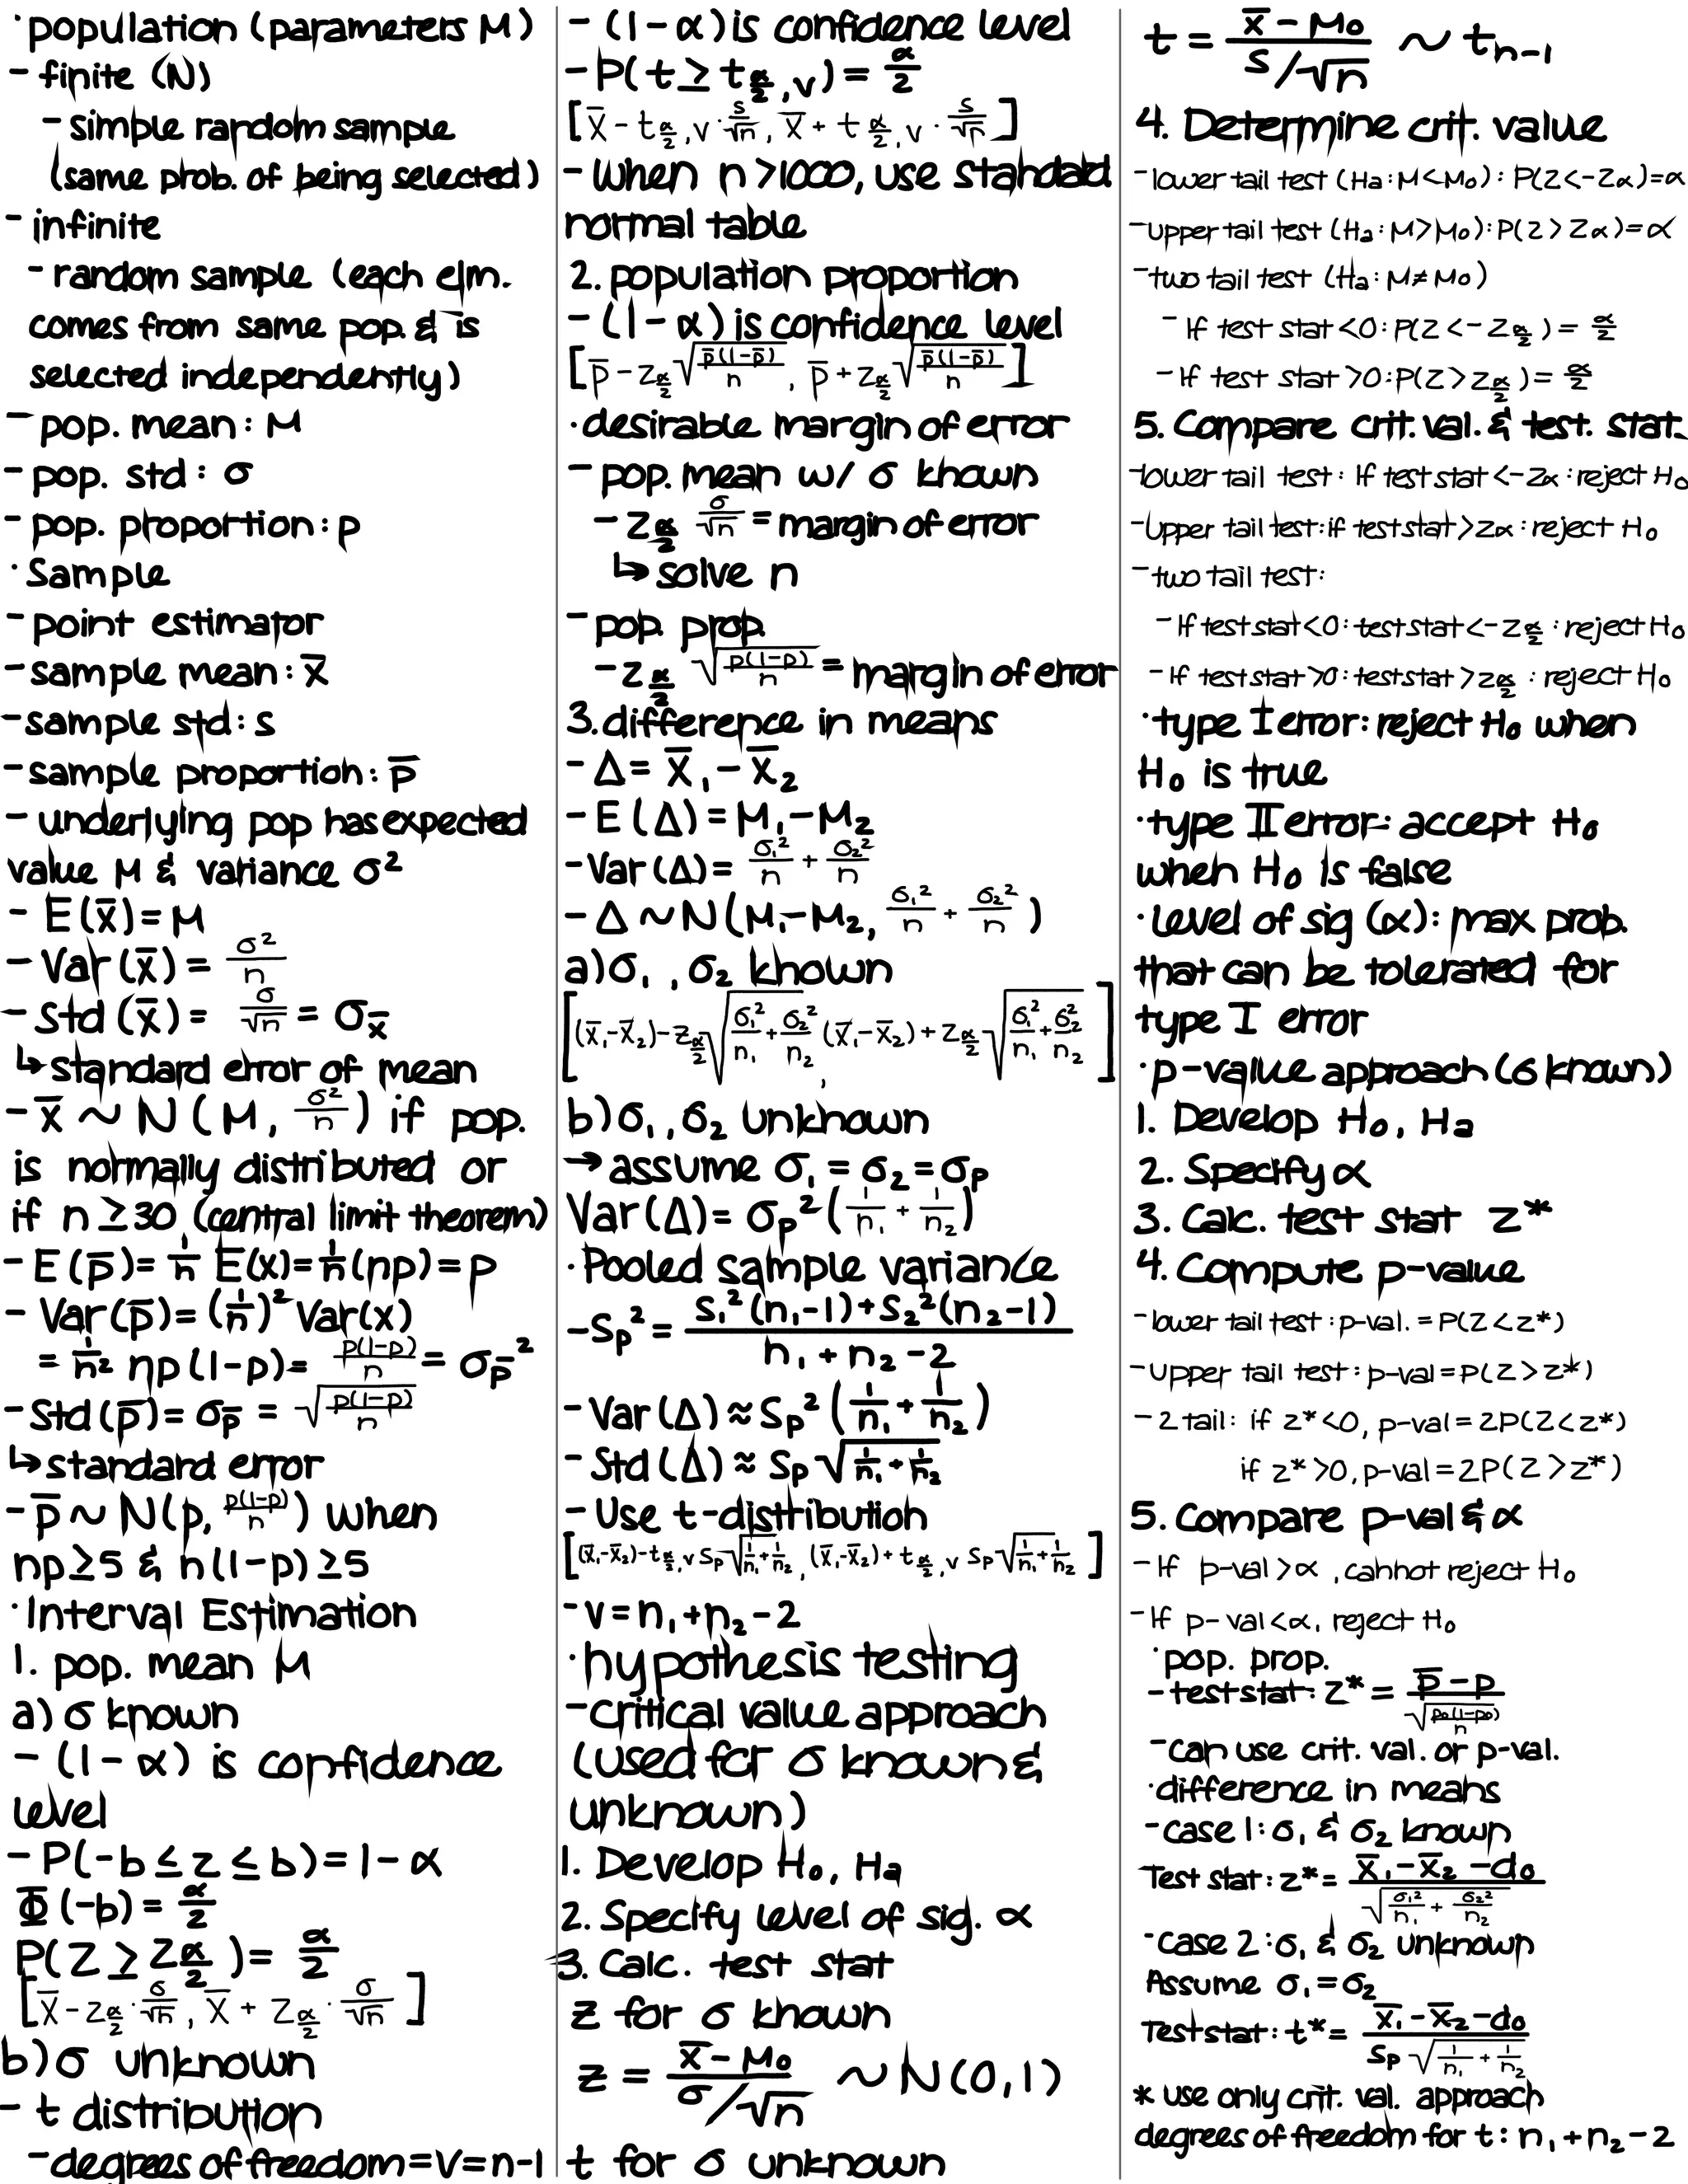 ·population (parameters M)
- finite (N)
- simple random sample
(same prob. of being selected)
- infinite
- random sample (each elm.
comes from same pop. & is
selected independently)
- pop. mean: M
- pop. std: σ
- pop. proportion: p
·Sample
- point estimator
- sample mean: x̅
- sample std: s
- sample proportion: p̅
- underlying pop has expected
value M & variance σ²
- E(x̅)=M
- Var(x̅)= σ²/n
- Std(x̅)= σ/√n = σx̅
↳standard error of mean
- x̅ ~ N(M, σ²/n) if pop.
is normally distributed or
if n ≥30 (central limit theorem)
- E(p̅)= 1/n E(x)= 1/n(np)=p
- Var(p̅)= (1/n)² Var(x)
= 1/n² np(1-p)= p(1-p)/n = σp̅²
- Std(p̅)= σp̅ = √(p(1-p)/n)
↳standard error
- p̅ ~ N(p, p(1-p)/n) when
np≥5 & n(1-p)≥5
·Interval Estimation
1. pop. mean M
a) σ known
- (1-α) is confidence
level
- P(-b≤z≤b)=1-α
Φ(-b)= α/2
P(Z≥Zα/2)= α/2
[x̅-zα/2·σ/√n, x̅+zα/2·σ/√n]
b) σ unknown
- t distribution
- degrees of freedom=v=n-1
- (1-α) is confidence level
- P(t≥tα/2,v)= α/2
[x̅-tα/2,v·s/√n, x̅+tα/2,v·s/√n]
- When n>1000, use standard
normal table
2. population proportion
- (1-α) is confidence level
[p̅-zα/2√(p̅(1-p̅)/n), p̅+zα/2√(p̅(1-p̅)/n)]
·desirable margin of error
- pop. mean w/ σ known
- zα/2 σ/√n = margin of error
↳ solve n
- pop. prop.
- zα/2 √(p(1-p)/n) = margin of error
3. difference in means
- Δ= x̅₁-x̅₂
- E(Δ)=M₁-M₂
- Var(Δ)= σ₁²/n + σ₂²/n
- Δ ~N(M₁-M₂, σ₁²/n + σ₂²/n)
a) σ₁, σ₂ known
[(x̅₁-x̅₂)-zα/2√(σ₁²/n₁+σ₂²/n₂), (x̅₁-x̅₂)+zα/2√(σ₁²/n₁+σ₂²/n₂)]
b) σ₁, σ₂ unknown
→ assume σ₁=σ₂=σp
Var(Δ)= σp²(1/n₁+1/n₂)
·Pooled sample variance
- Sp²= (s₁²(n₁-1)+s₂²(n₂-1))/(n₁+n₂-2)
- Var(Δ)≈Sp²(1/n₁+1/n₂)
- Std(Δ)≈ Sp√(1/n₁+1/n₂)
- Use t-distribution
[(x̅₁-x̅₂)-tα/2,v Sp√(1/n₁+1/n₂), (x̅₁-x̅₂)+tα/2,v Sp√(1/n₁+1/n₂)]
- v=n₁+n₂-2
·hypothesis testing
- critical value approach
(used for σ known &
unknown)
1. Develop H₀, Ha
2. Specify level of sig. α
3. Calc. test stat
z for σ known
z = (x̅-M₀)/(σ/√n) ~N(0,1)
t for σ unknown
t = (x̅-M₀)/(s/√n) ~ tn-1
4. Determine crit. value
- lower tail test (Ha:M<M₀): P(Z<-Zα)=α
- upper tail test (Ha:M>M₀): P(Z>Zα)=α
- two tail test (Ha:M≠M₀)
- If test stat <0: P(Z<-Zα/2)= α/2
- If test stat >0: P(Z>Zα/2)= α/2
5. Compare crit. val. & test. stat.
- lower tail test: If test stat <-Zα: reject H₀
- Upper tail test: if test stat>Zα: reject H₀
- two tail test:
- If test stat<0: test stat<-Zα/2: reject H₀
- If test stat>0: test stat>Zα/2: reject H₀
·type I error: reject H₀ when
H₀ is true
·type II error: accept H₀
when H₀ is false
·level of sig (α): max prob.
that can be tolerated for
type I error
·p-value approach (σ known)
1. Develop H₀, Ha
2. Specify α
3. Calc. test stat z*
4. Compute p-value
- lower tail test: p-val. = P(Z<z*)
- Upper tail test: p-val = P(Z>z*)
- 2 tail: if z*<0, p-val = 2P(Z<z*)
if z*>0, p-val = 2P(Z>z*)
5. Compare p-val & α
- If p-val>α, cannot reject H₀
- If p-val<α, reject H₀
·pop. prop.
- test stat: z* = (p̅-p)/√(p₀(1-p₀)/n)
- can use crit. val. or p-val.
·difference in means
- case 1: σ₁ & σ₂ known
Test stat: z*= (x̅₁-x̅₂-d₀)/√(σ₁²/n₁+σ₂²/n₂)
- case 2: σ₁ & σ₂ unknown
Assume σ₁=σ₂
Test stat: t*= (x̅₁-x̅₂-d₀)/(Sp√(1/n₁+1/n₂))
* use only crit. val. approach
degrees of freedom for t: n₁+n₂-2